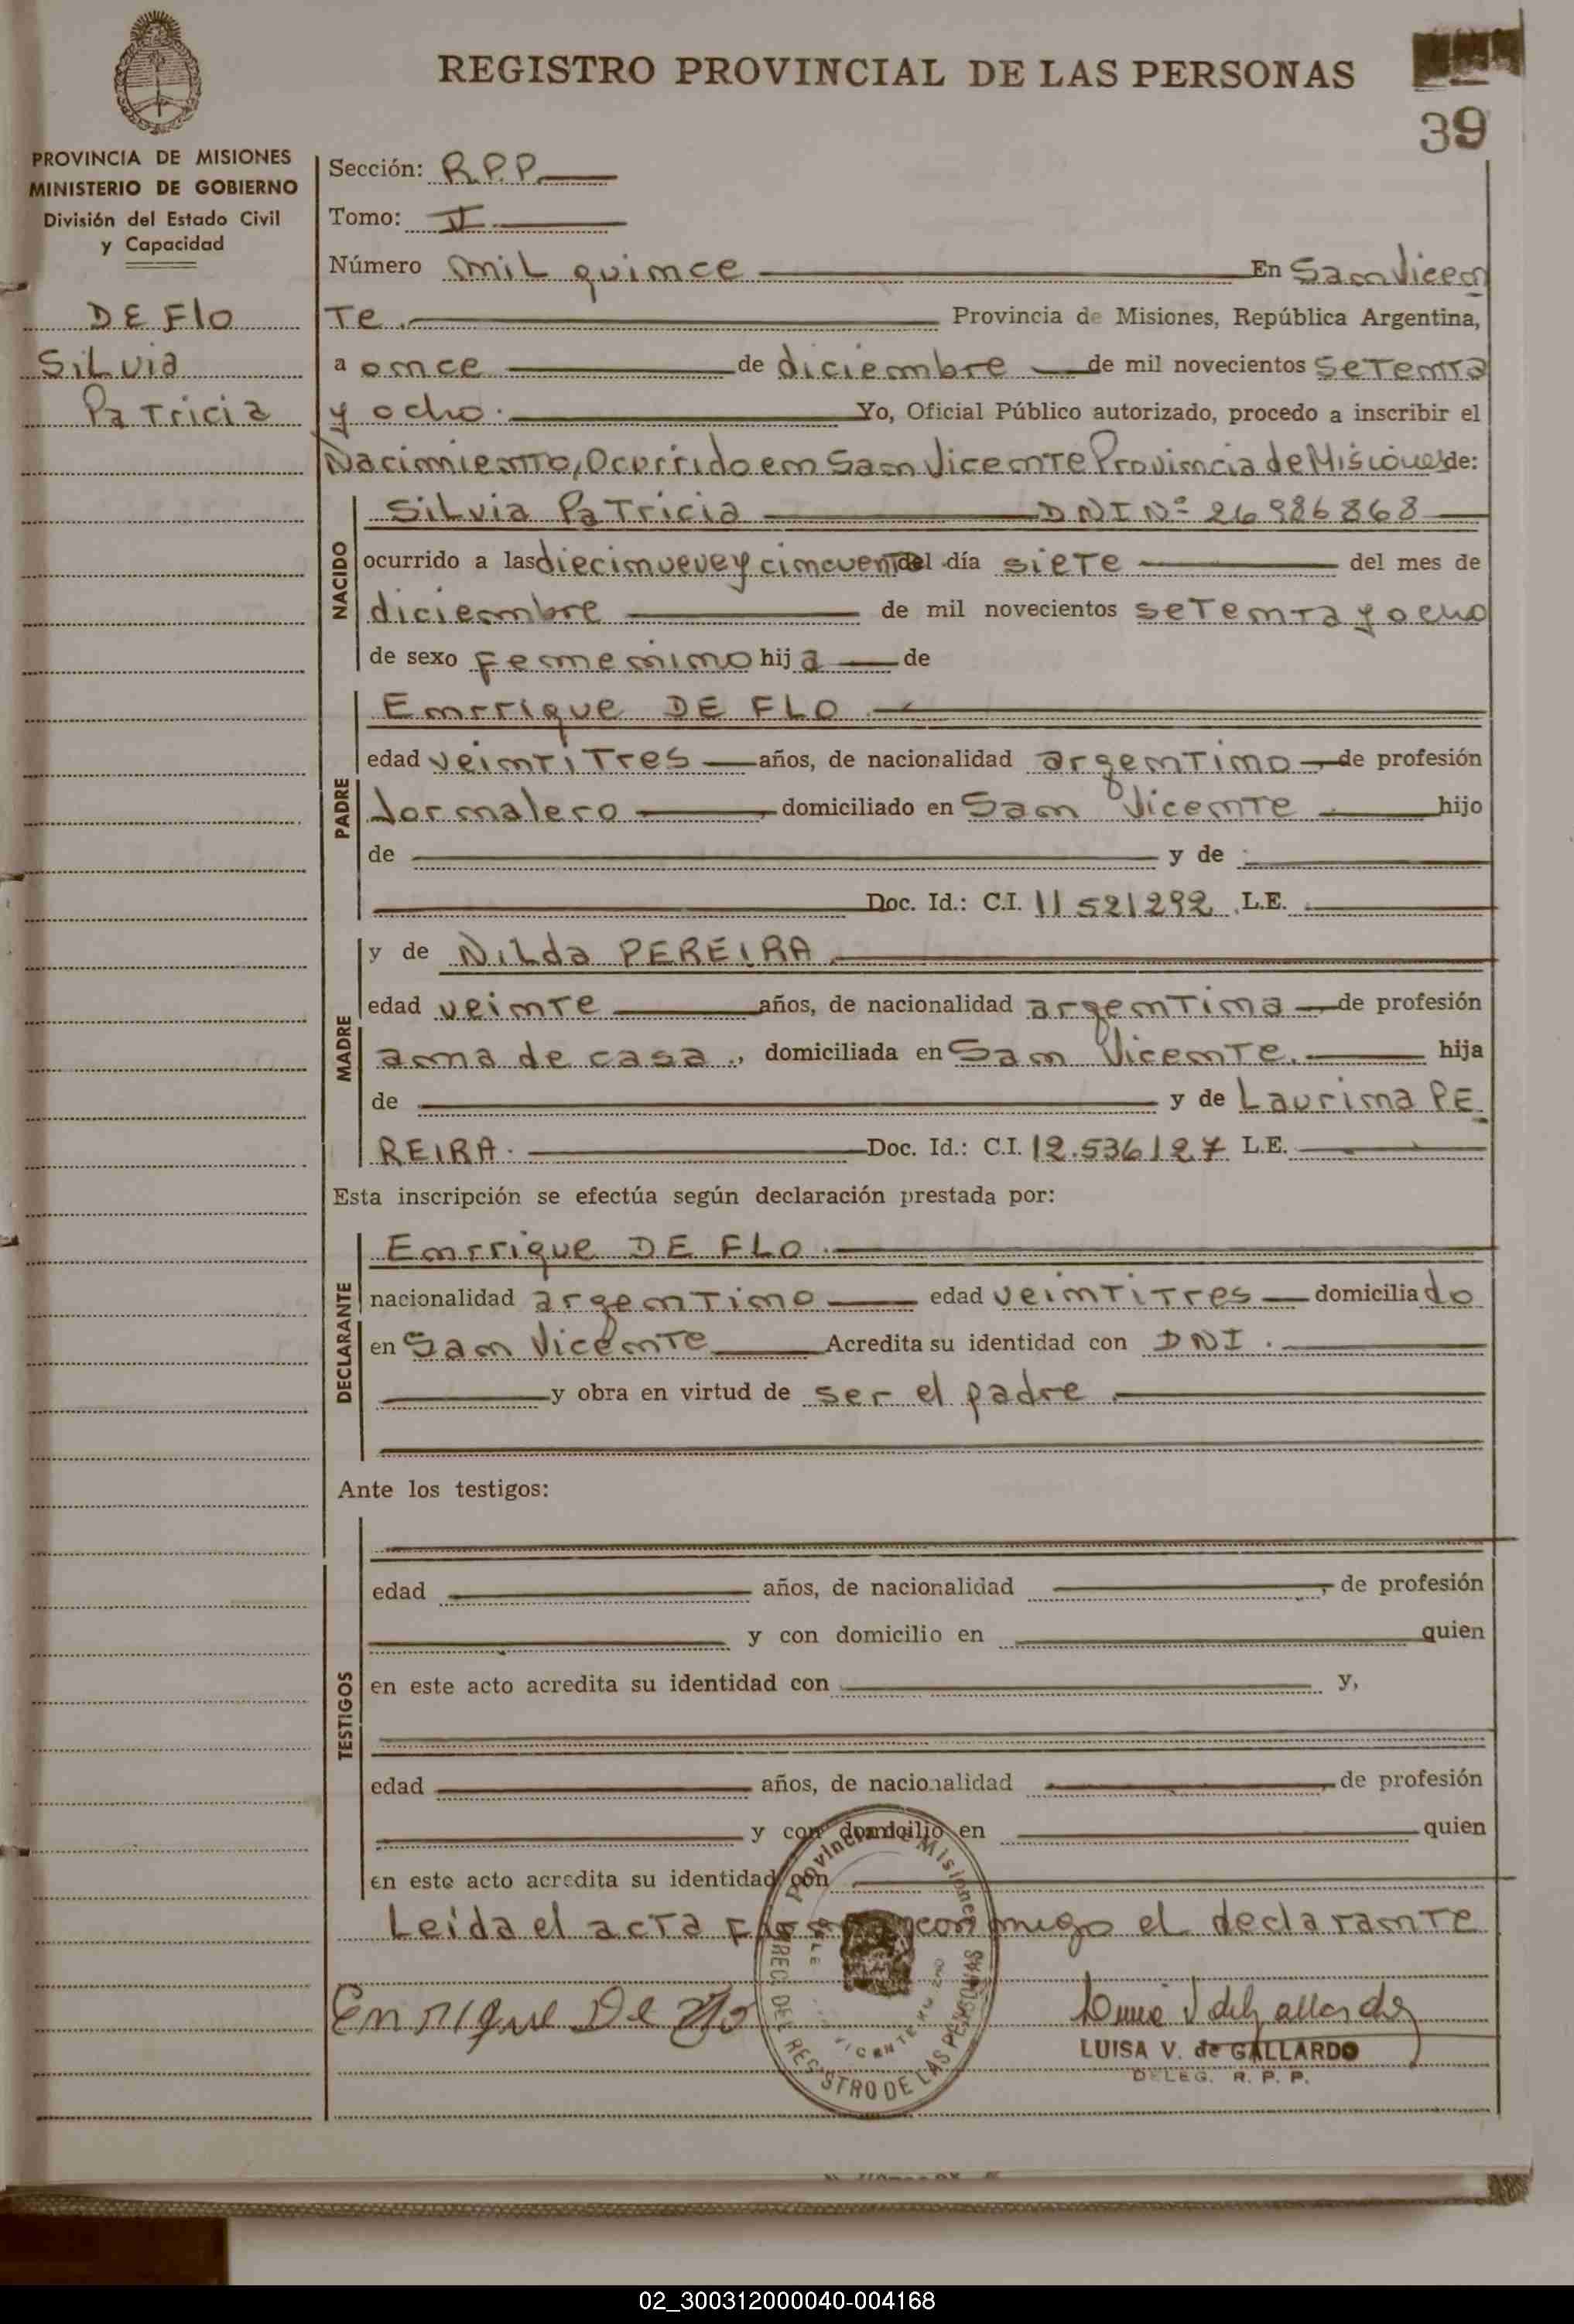 REGISTRO PROVINCIAL DE LAS PERSONAS
39
PROVINCIA DE MISIONES
MINISTERIO DE GOBIERNO
División del Estado Civil
y Capacidad
DE Flo
Silvia
Patricia
Sección: R.P.P.
Tomo: II
Número mil quince En San Vicen
te. Provincia de Misiones, República Argentina,
a once de diciembre de mil novecientos setenta
y ocho. Yo, Oficial Público autorizado, procedo a inscribir el
Nacimiento, Ocurrido en San Vicente Provincia de Misiones de:
NACIDO
Silvia Patricia DNI Nº 26986868
ocurrido a las diecinueve y cincuenta del día siete del mes de
diciembre de mil novecientos setenta y ocho
de sexo femenino hija de
PADRE
Enrrique DE FLO
edad veintitres años, de nacionalidad argentino, de profesión
Jornalero, domiciliado en San Vicente hijo
de y de
Doc. Id.: C.I. 11521292 L.E.
MADRE
y de Nilda PEREIRA
edad veinte años, de nacionalidad argentina, de profesión
ama de casa, domiciliada en San Vicente. hija
de y de Laurina PE
REIRA. Doc. Id.: C.I. 12.536127 L.E.
Esta inscripción se efectúa según declaración prestada por:
DECLARANTE
Enrrique DE FLO.
nacionalidad argentino edad veintitres domiciliado
en San Vicente Acredita su identidad con DNI.
y obra en virtud de ser el padre
Ante los testigos:
TESTIGOS
edad años, de nacionalidad , de profesión
y con domicilio en quien
en este acto acredita su identidad con y,
edad años, de nacionalidad , de profesión
y con domicilio en quien
en este acto acredita su identidad con
Leida el acta conmigo el declarante
Provincia de Misiones
REGISTRO DE LAS PERSONAS
Enrique De Flo
LUISA V. de GALLARDO
DELEG. R. P. P.
02_300312000040-004168